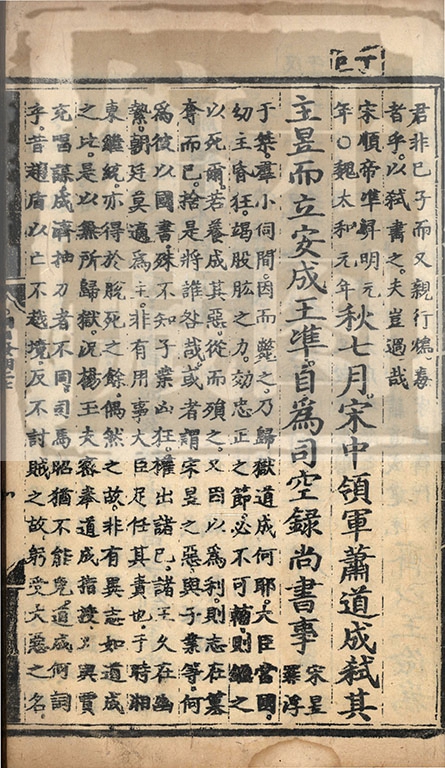 丁巳
君非已子而又親行毒
者乎以弒書之夫豈過哉
宋順帝準昇明元
年○魏太和元年
秋七月宋中領軍蕭道成弒其
主昱而立安成王準自爲司空錄尚書事
宋昱
罪浮
于桀羣小伺間因而斃之乃歸獄道成何耶大臣當國
幼主昏狂竭股肱之力効忠正之節必不可輔則繼之
以死爾若養成其惡從而殞之又因以爲利則志在篡
奪而已捨是將誰咎哉或者謂宋昱之惡與子業等何
爲彼以國書殊不知子業凶狂權出諸已諸王久在幽
縶朝廷莫適爲主非有用事大臣足任其責也于時湘
東繼統亦得於脫死之餘偶然之故非有異志如道成
之比是以無所歸獄況楊王夫密奉道成指授與賈
充唱謀成濟抽刀者不同司馬昭猶不能免道成何詞
乎昔趙盾以亡不越境反不討賊之故躬受大惡之名